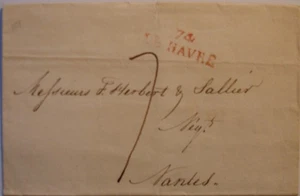 74
LE HAVRE
7
Messieurs F. Herbert & Sallier
Négt
Nantes.